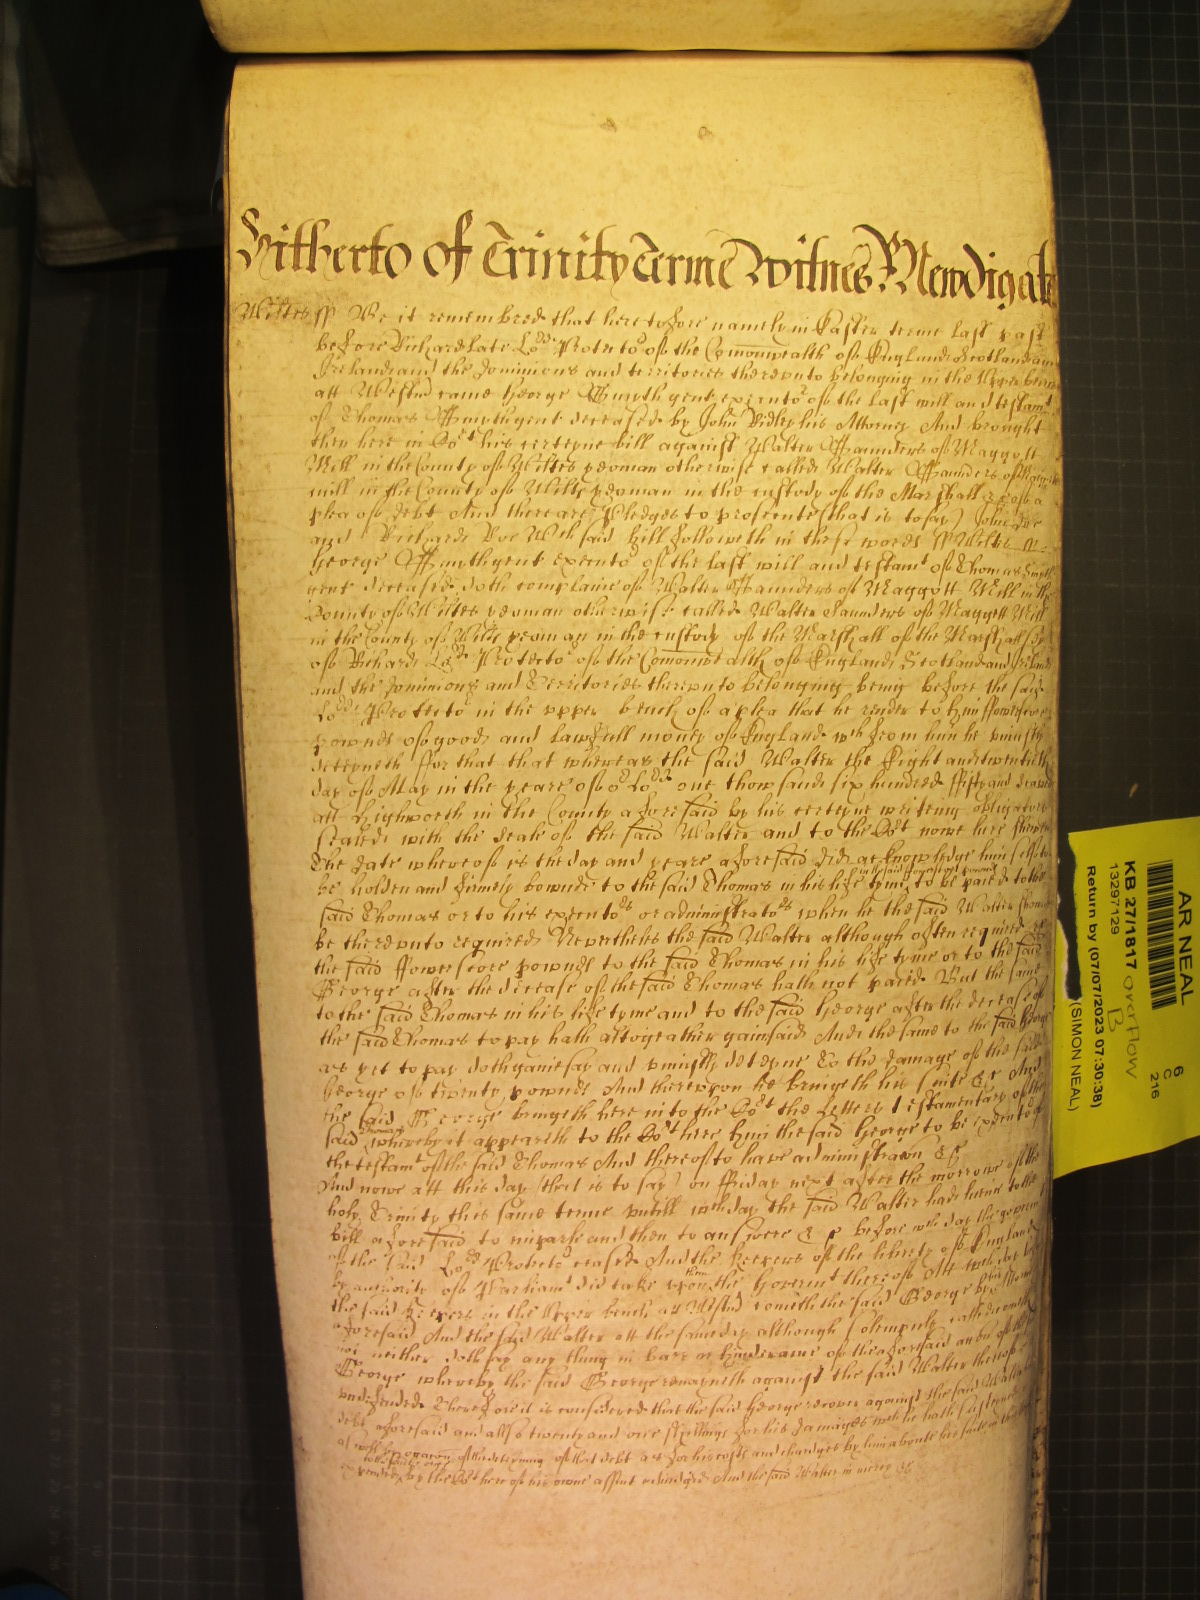 Hitherto of Trinity Terme Witnes R Newdigate
Wiltes ss Be it remembred that heretofore namely in Easter terme last past
before Richard late Lord Protector of the Comonwealth of England Scotland and
Ireland and the Dominions and territories thereunto belonging in the Upper bench
att Westmr came George Smyth gent executor of the last will and testamt
of Thomas Smyth gent deceased by John Ridley his Attorney And brought
then here in Cort his certeyne bill against Walter Saunders of Maggott
Mill in the County of Wiltes yeoman otherwise called Walter Saunders of
mill in the County of Wiltes yeoman in the custody of the Marshall &c of a
plea of debt And there are Pledges to prosecute (that is to say) John Doe
and Richard Roe Wch said bill followeth in these words ss Wiltes ss
George Smyth gent executor of the last will and testamt of Thomas Smyth
gent deceased doth complaine of Walter Saunders of Maggott Mill in the
County of Wiltes yeoman otherwise called Walter Saunders of Maggott Mill
in the County of Wiltes yeoman in the custody of the Marshall of the Marshallsey
of Richard Lord Protector of the Comonwealth of England Scotland and Ireland
and the Dominions and Territories thereunto belonging being before the said
Lord Protector in the upper bench of a plea that he render to him ffowerscore
pownds of good and lawfull money of England wch from him he uniustly
deteyneth ffor that that whereas the said Walter the Eight and twentieth
day of May in the yeare of or Lord one thowsand six hundred ffifty and
att Highworth in the County aforesaid by his certeyne writeing obligatory
sealed with the seale of the said Walter and to the Cort nowe here shewen
the date whereof is the day and yeare aforesaid did acknowledge himselfe to
be holden and firmely bownde to the said Thomas in his life tyme in the said ffowerscore pownds to be paied to the
said Thomas or to his executors or administrators when he the said Walter should
be thereunto required Neverthelesse the said Walter although often required &c
the said ffowerscore pownds to the said Thomas in his life tyme or to the said
George after the decease of the said Thomas hath not paied But the same
to the said Thomas in his life tyme and to the said George after the decease of
the said Thomas to pay hath altogeather gainsaid And the same to the said George
as yet to pay doth gainesay and uniustly deteyne To the damage of the said
George of twenty pownds And thereupon he bringeth his suite &c And
the said George bringeth here into the Cort the Letters Testamentary of the
said Thomas whereby it appeareth to the Cort here him the said George to be executor of
the testamt of the said Thomas And thereof to have administracon &c
And nowe att this day (that is to say) on ffriday next after the morrowe of the
holy Trinity this same terme untill wch day the said Walter had licence to the
bill aforesaid to imparle and then to answere &c before wch day the governmt
of the said Lord Protector ceased And the Keepers of the liberty of England
by authority of Parliamt did take upon them the Governmt thereof Att wch day before
the said Keepers in the Upper bench att Westmr cometh the said George by his Attorney
aforesaid And the said Walter att the same day although solempnly called cometh
not neither doth say any thing in barr or hinderance of the aforesaid accon of the said
George whereby the said George remayneth against the said Walter thereof
undefended Therefore it is considered that the said George recover against the said Walter
debt aforesaid and allso twenty and one shillings for his damages wch he hath susteyned
as well by occacon of the deteyning of that debt as for his costs and chardges by him aboute his suite in this behalfe
to the said George by the Cort here of his owne assent adiudged And the said Walter in mercy &c
AR NEAL
6
C
216
KB 27/1817 overflow
B
13297129
Return by (07/07/2023 07:30:38)
(SIMON NEAL)